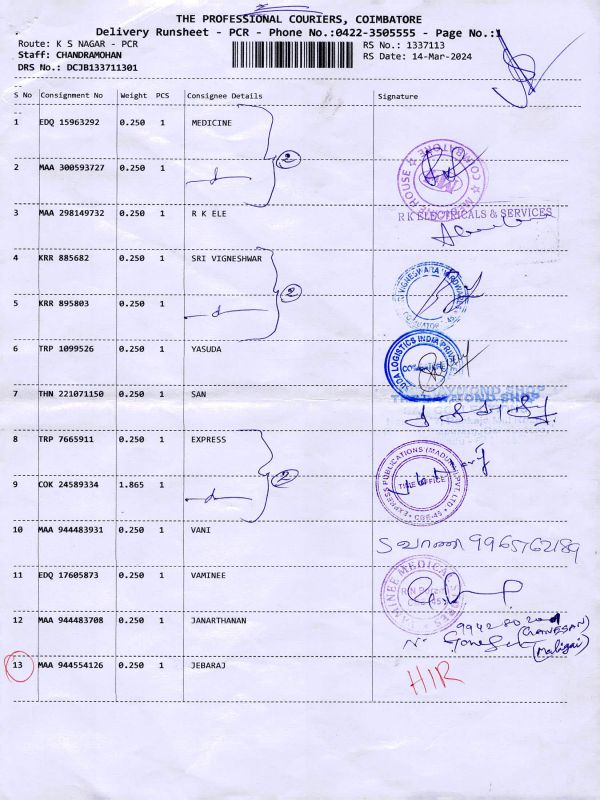 THE PROFESSIONAL COURIERS, COIMBATORE
Delivery Runsheet - PCR - Phone No.:0422-3505555 - Page No.:1
Route: K S NAGAR - PCR RS No.: 1337113
Staff: CHANDRAMOHAN RS Date: 14-Mar-2024
DRS No.: DCJB133711301
S No Consignment No Weight PCS Consignee Details Signature
1 EDQ 15963292 0.250 1 MEDICINE
2
2 MAA 300593727 0.250 1
3 MAA 298149732 0.250 1 R K ELE
R K ELECTRICALS & SERVICES
4 KRR 885682 0.250 1 SRI VIGNESHWAR
2
5 KRR 895803 0.250 1
6 TRP 1099526 0.250 1 YASUDA
LOGISTICS INDIA
7 THN 221071150 0.250 1 SAN
8 TRP 7665911 0.250 1 EXPRESS
2
EXPRESS PUBLICATIONS (MADURAI) PVT. LTD
TIME OFFICE
CBE-45
9 COK 24589334 1.865 1
10 MAA 944483931 0.250 1 VANI
9965762189
11 EDQ 17605873 0.250 1 VAMINEE
VAMINEE MEDICAL
12 MAA 944483708 0.250 1 JANARTHANAN
(GANESAN)
(Maligai)
13 MAA 944554126 0.250 1 JEBARAJ
HIR